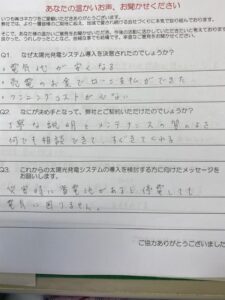 あなたの温かいお声、お聞かせください
Q1. なぜ太陽光発電システム導入を決意されたのでしょうか？
・電気代が安くなる
・売電のお金でローン支払ができた
・ランニングコストがいらない
Q2. なにが決め手となって、弊社とご契約いただけたのでしょうか？
丁寧な説明とメンテナンスの質のよさ
何でも相談できてすぐきてくれる
Q3. これからの太陽光発電システムの導入を検討する方に向けたメッセージを
お願いします。
災害時に蓄電池があると停電しても
電気に困りません。
ご協力ありがとうございました